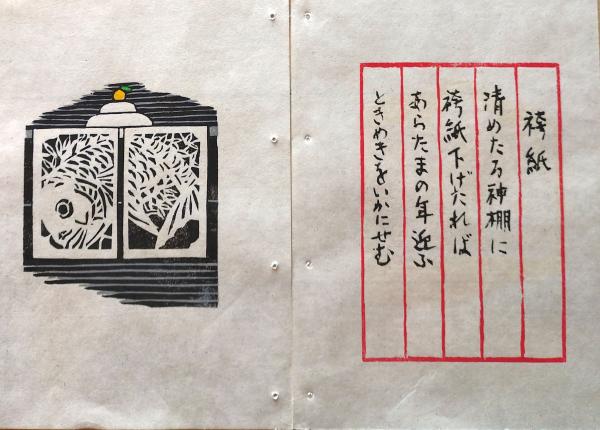 袴紙
清めたる神棚に
袴紙下げたれば
あらたまの年迎ふ
ときめきをいかにせむ